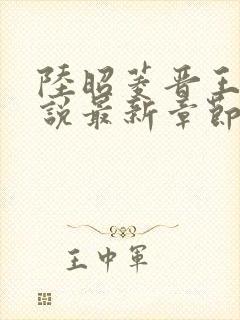 陸昭菱晋王
說最新章節
王中軍